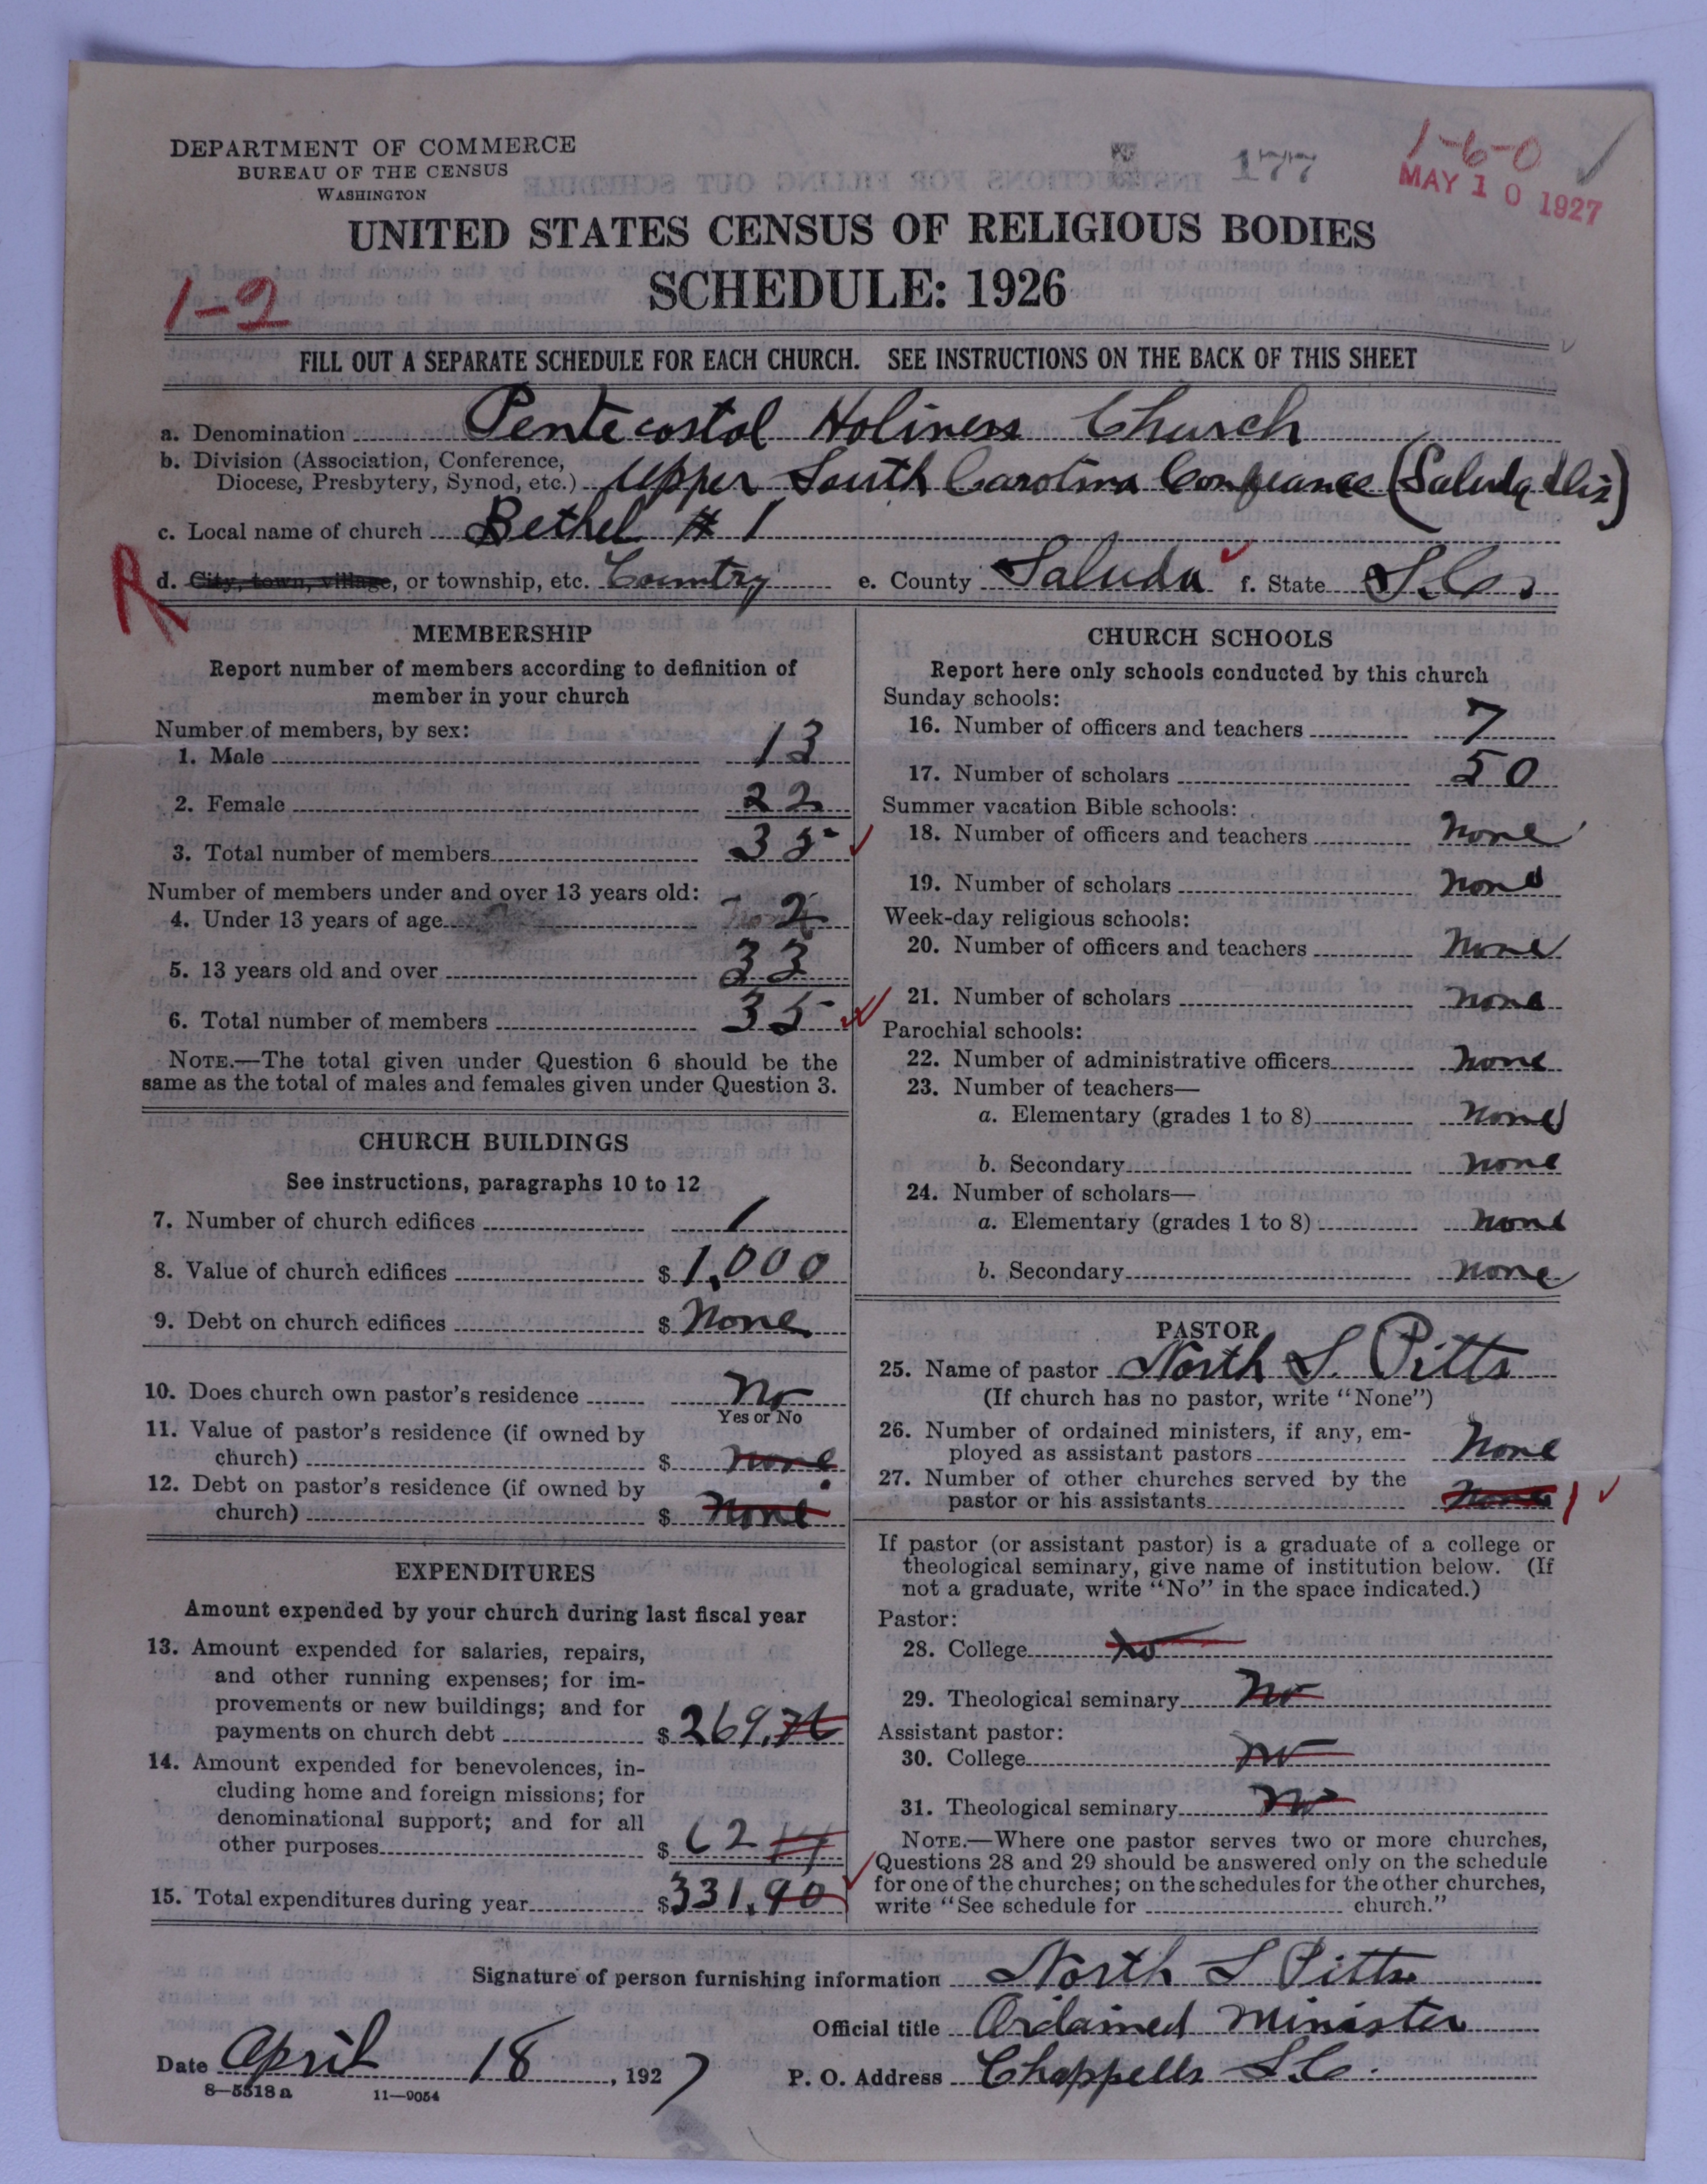 DEPARTMENT OF COMMERCE
BUREAU OF THE CENSUS
WASHINGTON
177
1-6-0
MAY 10 1927
UNITED STATES CENSUS OF RELIGIOUS BODIES
SCHEDULE: 1926
1-2
FILL OUT A SEPARATE SCHEDULE FOR EACH CHURCH. SEE INSTRUCTIONS ON THE BACK OF THIS SHEET
a. Denomination Pentecostal Holiness Church
b. Division (Association, Conference,
Diocese, Presbytery, Synod, etc.) Upper South Carolina Conference (Saluda Dis)
c. Local name of church Bethel # 1
R
d. City, town, village, or township, etc. Country e. County Saluda f. State S.C.
MEMBERSHIP
Report number of members according to definition of
member in your church
Number of members, by sex:
1. Male 13
2. Female 22
3. Total number of members 35
Number of members under and over 13 years old:
4. Under 13 years of age 2
5. 13 years old and over 33
6. Total number of members 35
NOTE.—The total given under Question 6 should be the
same as the total of males and females given under Question 3.
CHURCH BUILDINGS
See instructions, paragraphs 10 to 12
7. Number of church edifices 1
8. Value of church edifices $ 1,000
9. Debt on church edifices $ None
10. Does church own pastor's residence No
Yes or No
11. Value of pastor's residence (if owned by
church) $ none
12. Debt on pastor's residence (if owned by
church) $ none
EXPENDITURES
Amount expended by your church during last fiscal year
13. Amount expended for salaries, repairs,
and other running expenses; for im-
provements or new buildings; and for
payments on church debt $ 269.76
14. Amount expended for benevolences, in-
cluding home and foreign missions; for
denominational support; and for all
other purposes $ 62
15. Total expenditures during year $ 331.90
CHURCH SCHOOLS
Report here only schools conducted by this church
Sunday schools:
16. Number of officers and teachers 7
17. Number of scholars 50
Summer vacation Bible schools:
18. Number of officers and teachers None
19. Number of scholars None
Week-day religious schools:
20. Number of officers and teachers None
21. Number of scholars None
Parochial schools:
22. Number of administrative officers None
23. Number of teachers—
a. Elementary (grades 1 to 8) None
b. Secondary None
24. Number of scholars—
a. Elementary (grades 1 to 8) None
b. Secondary None
PASTOR
25. Name of pastor North S. Pitts
(If church has no pastor, write "None")
26. Number of ordained ministers, if any, em-
ployed as assistant pastors None
27. Number of other churches served by the
pastor or his assistants None 1
If pastor (or assistant pastor) is a graduate of a college or
theological seminary, give name of institution below. (If
not a graduate, write "No" in the space indicated.)
Pastor:
28. College No
29. Theological seminary No
Assistant pastor:
30. College No
31. Theological seminary No
NOTE.—Where one pastor serves two or more churches,
Questions 28 and 29 should be answered only on the schedule
for one of the churches; on the schedules for the other churches,
write "See schedule for church."
Signature of person furnishing information North S Pitts
Official title Ordained Minister
Date April 18, 1927 P. O. Address Chappells S.C.
8—5518a 11—9054